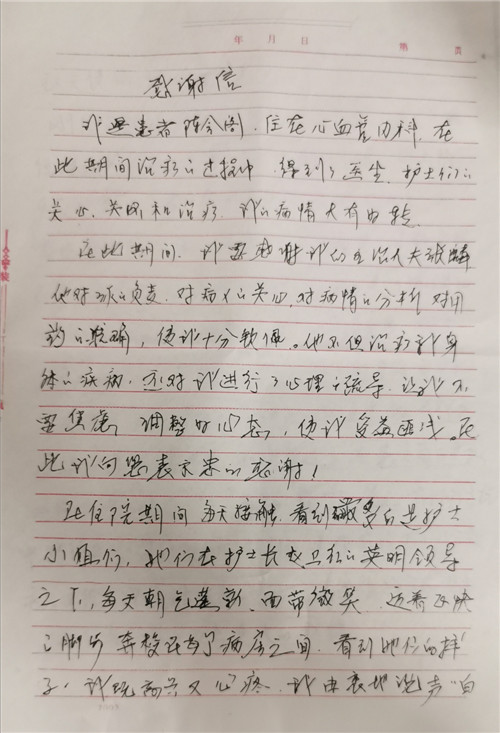 年 月 日 第 页
感谢信
我是患者陈 阁.住在心血管内科,在
此期间治疗的过程中.得到了医生.护士们的
关心.关照和治疗.我的病情大有好转
在此期间.我要感谢我的主治大夫
他对 的负责.对病人的关心,对病情的分析 对用
药的准确,使我十分软佩。他不但治疗我身
体的疾病.还对我进行了心理的疏导.让我不
要焦虑,调整好心态,使我受益匪浅.在
此我向您表示衷心的感谢!
在住院期间每天接触.看到最多的是护士
小姐们,她们在护士长赵卫红的英明领导
之下,每天朝气蓬 .面带微笑 迈着 快
的脚步奔梭在各个病房之间.看到她们的样
子,我既 又心疼.我由衷地说声"白